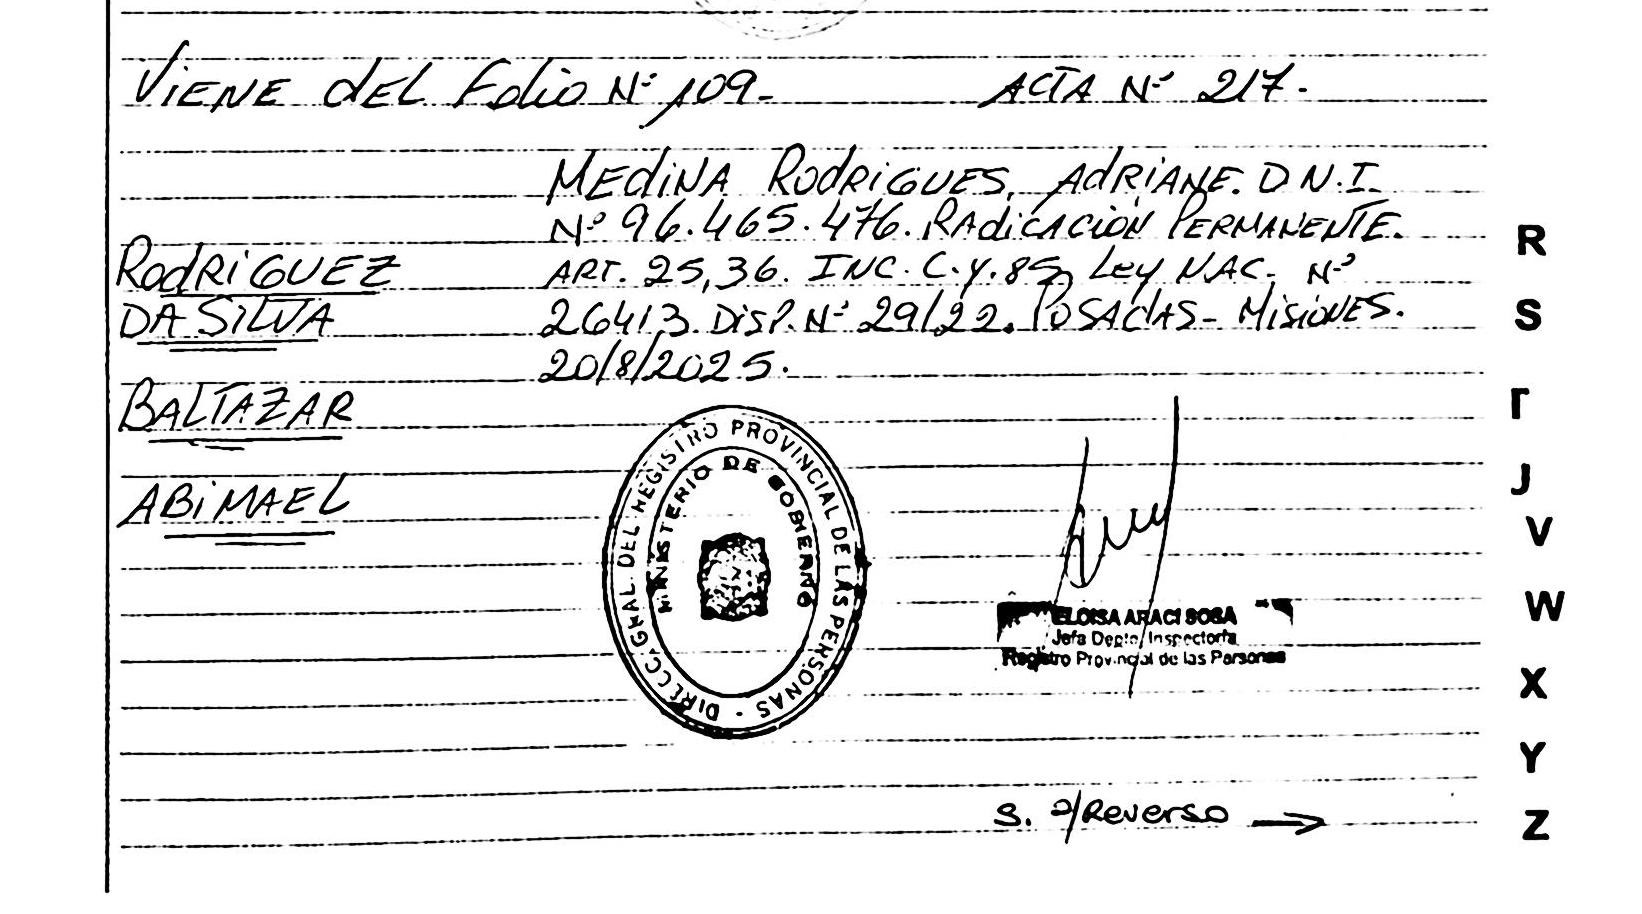 Viene del Folio Nº 109- ACTA Nº 217.
Medina Rodrigues, Adriane. D N.I.
Nº 96.465.476. Radicación Permanente.
Rodriguez Art. 25,36. Inc. C. y. 85, Ley Nac. Nº
Da Silva 26413. Disp. Nº 29/22. Posadas - Misiones.
20/8/2025.
Baltazar
Abimael
DIRECC. GRAL. DEL REGISTRO PROVINCIAL DE LAS PERSONAS -
MINISTERIO DE GOBIERNO
ELOISA ARACI SOSA
Jefa Depto. Inspectoría
Registro Provincial de las Personas
S. a/Reverso →
R
S
T
J
V
W
X
Y
Z